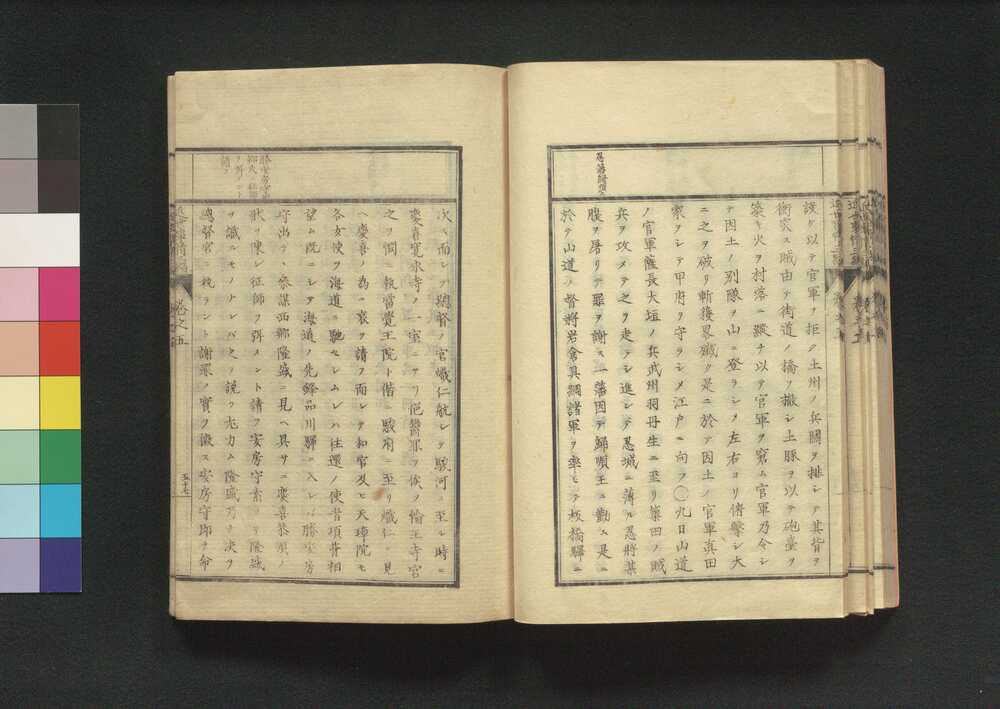 護ケ以テ官軍ヲ拒ク土州ノ兵關ヲ排シテ其背ヲ
衝家ス賊由テ街道ノ橋ヲ撤シ土豚ヲ以テ砲臺ヲ
築キ火ヲ村落ニ縱チ以テ官軍ヲ窮ム官軍乃令シ
テ因土ノ別隊ヲ山ニ登ラシメ左右ヨリ俯擊シ大
ニ之ヲ破リ斬獲畧殲ク是ニ於テ因土ノ官軍眞田
家ヲシテ甲府ヲ守ラシメ江戸ニ向フ〇九日山道
ノ官軍薩長大垣ノ兵武州羽丹生ニ至リ簗田ノ賊
兵ヲ攻メテ之ヲ走ラシ進ンテ忍城ニ薄ル忍將某
腹ヲ屠リテ罪ヲ謝ス一藩因テ歸順王ニ勤ス是ニ
於テ山道ノ督將岩倉具綱諸軍ヲ率ヒテ板橋驛ニ
忍藩歸順
次ス而シテ總督ノ宮熾仁航シテ駿河ニ至レ時ニ
慶喜寛永寺ノ一室ニアリ
之ヲ憫ミ執當覺王院ト偕ニ駿府ニ至リ熾仁ニ見
ヘ慶喜ノ為ニ哀ヲ請フ而シテ和宮及ヒ天璋院モ
各女使ヲ海道ニ馳セシムレハ往還ノ使者項背相
望ム既ニシテ海道ノ先鋒品川驛ニ入レハ勝安房
守出テ、參謀西郷隆盛ニ見ヘ具サニ慶喜恭順ノ
狀ヲ陳シ征師ヲ弭メント請フ安房守素ヨリ隆盛
ヲ識ルモノナレバ之ヲ説ク尤力ム隆盛乃チ決ヲ
總督宮ニ執ラント謝罪ノ實ヲ徴ス安房守即チ命
卷之五
五十七